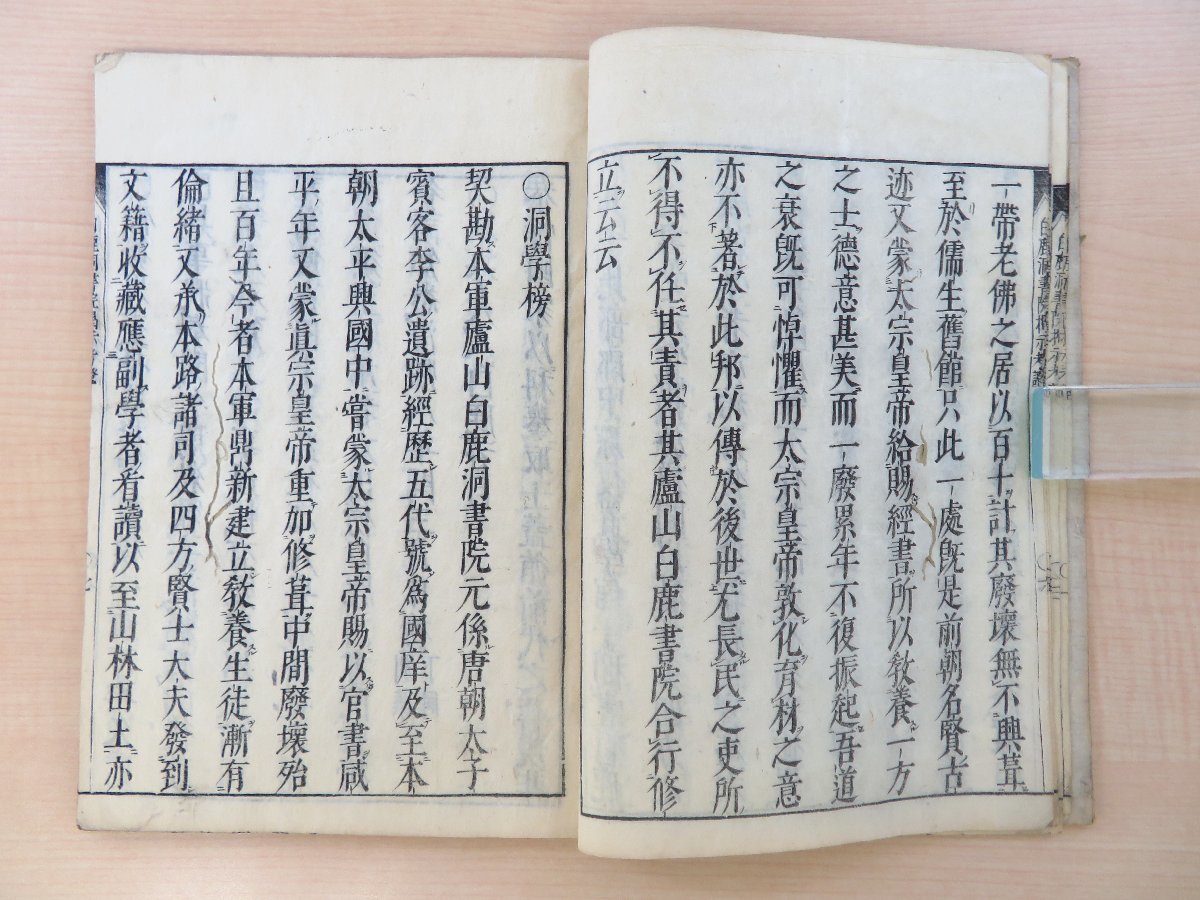 一帶老佛之居以百十計其廢壞無不興葺
至於儒生舊館只此一處旣是前朝名賢古
迹又蒙太宗皇帝給賜經書所以敎養一方
之士德意甚美而一廢累年不復振起吾道
之衰旣可悼懼而太宗皇帝敦化育材之意
亦不著於此邦以傳於後世尤長民之吏所
不得不任其責者其廬山白鹿書院合行修
立云云
○洞學榜
契勘本軍廬山白鹿洞書院元係唐朝太子
賓客李公遺跡經歷五代號爲國庠及至本
朝太平興國中嘗蒙太宗皇帝賜以官書咸
平年又蒙眞宗皇帝重加修葺中間廢壞殆
且百年今者本軍鼎新建立敎養生徒漸有
倫緒又承本路諸司及四方賢士大夫發到
文籍收藏應副學者看讀以至山林田土亦